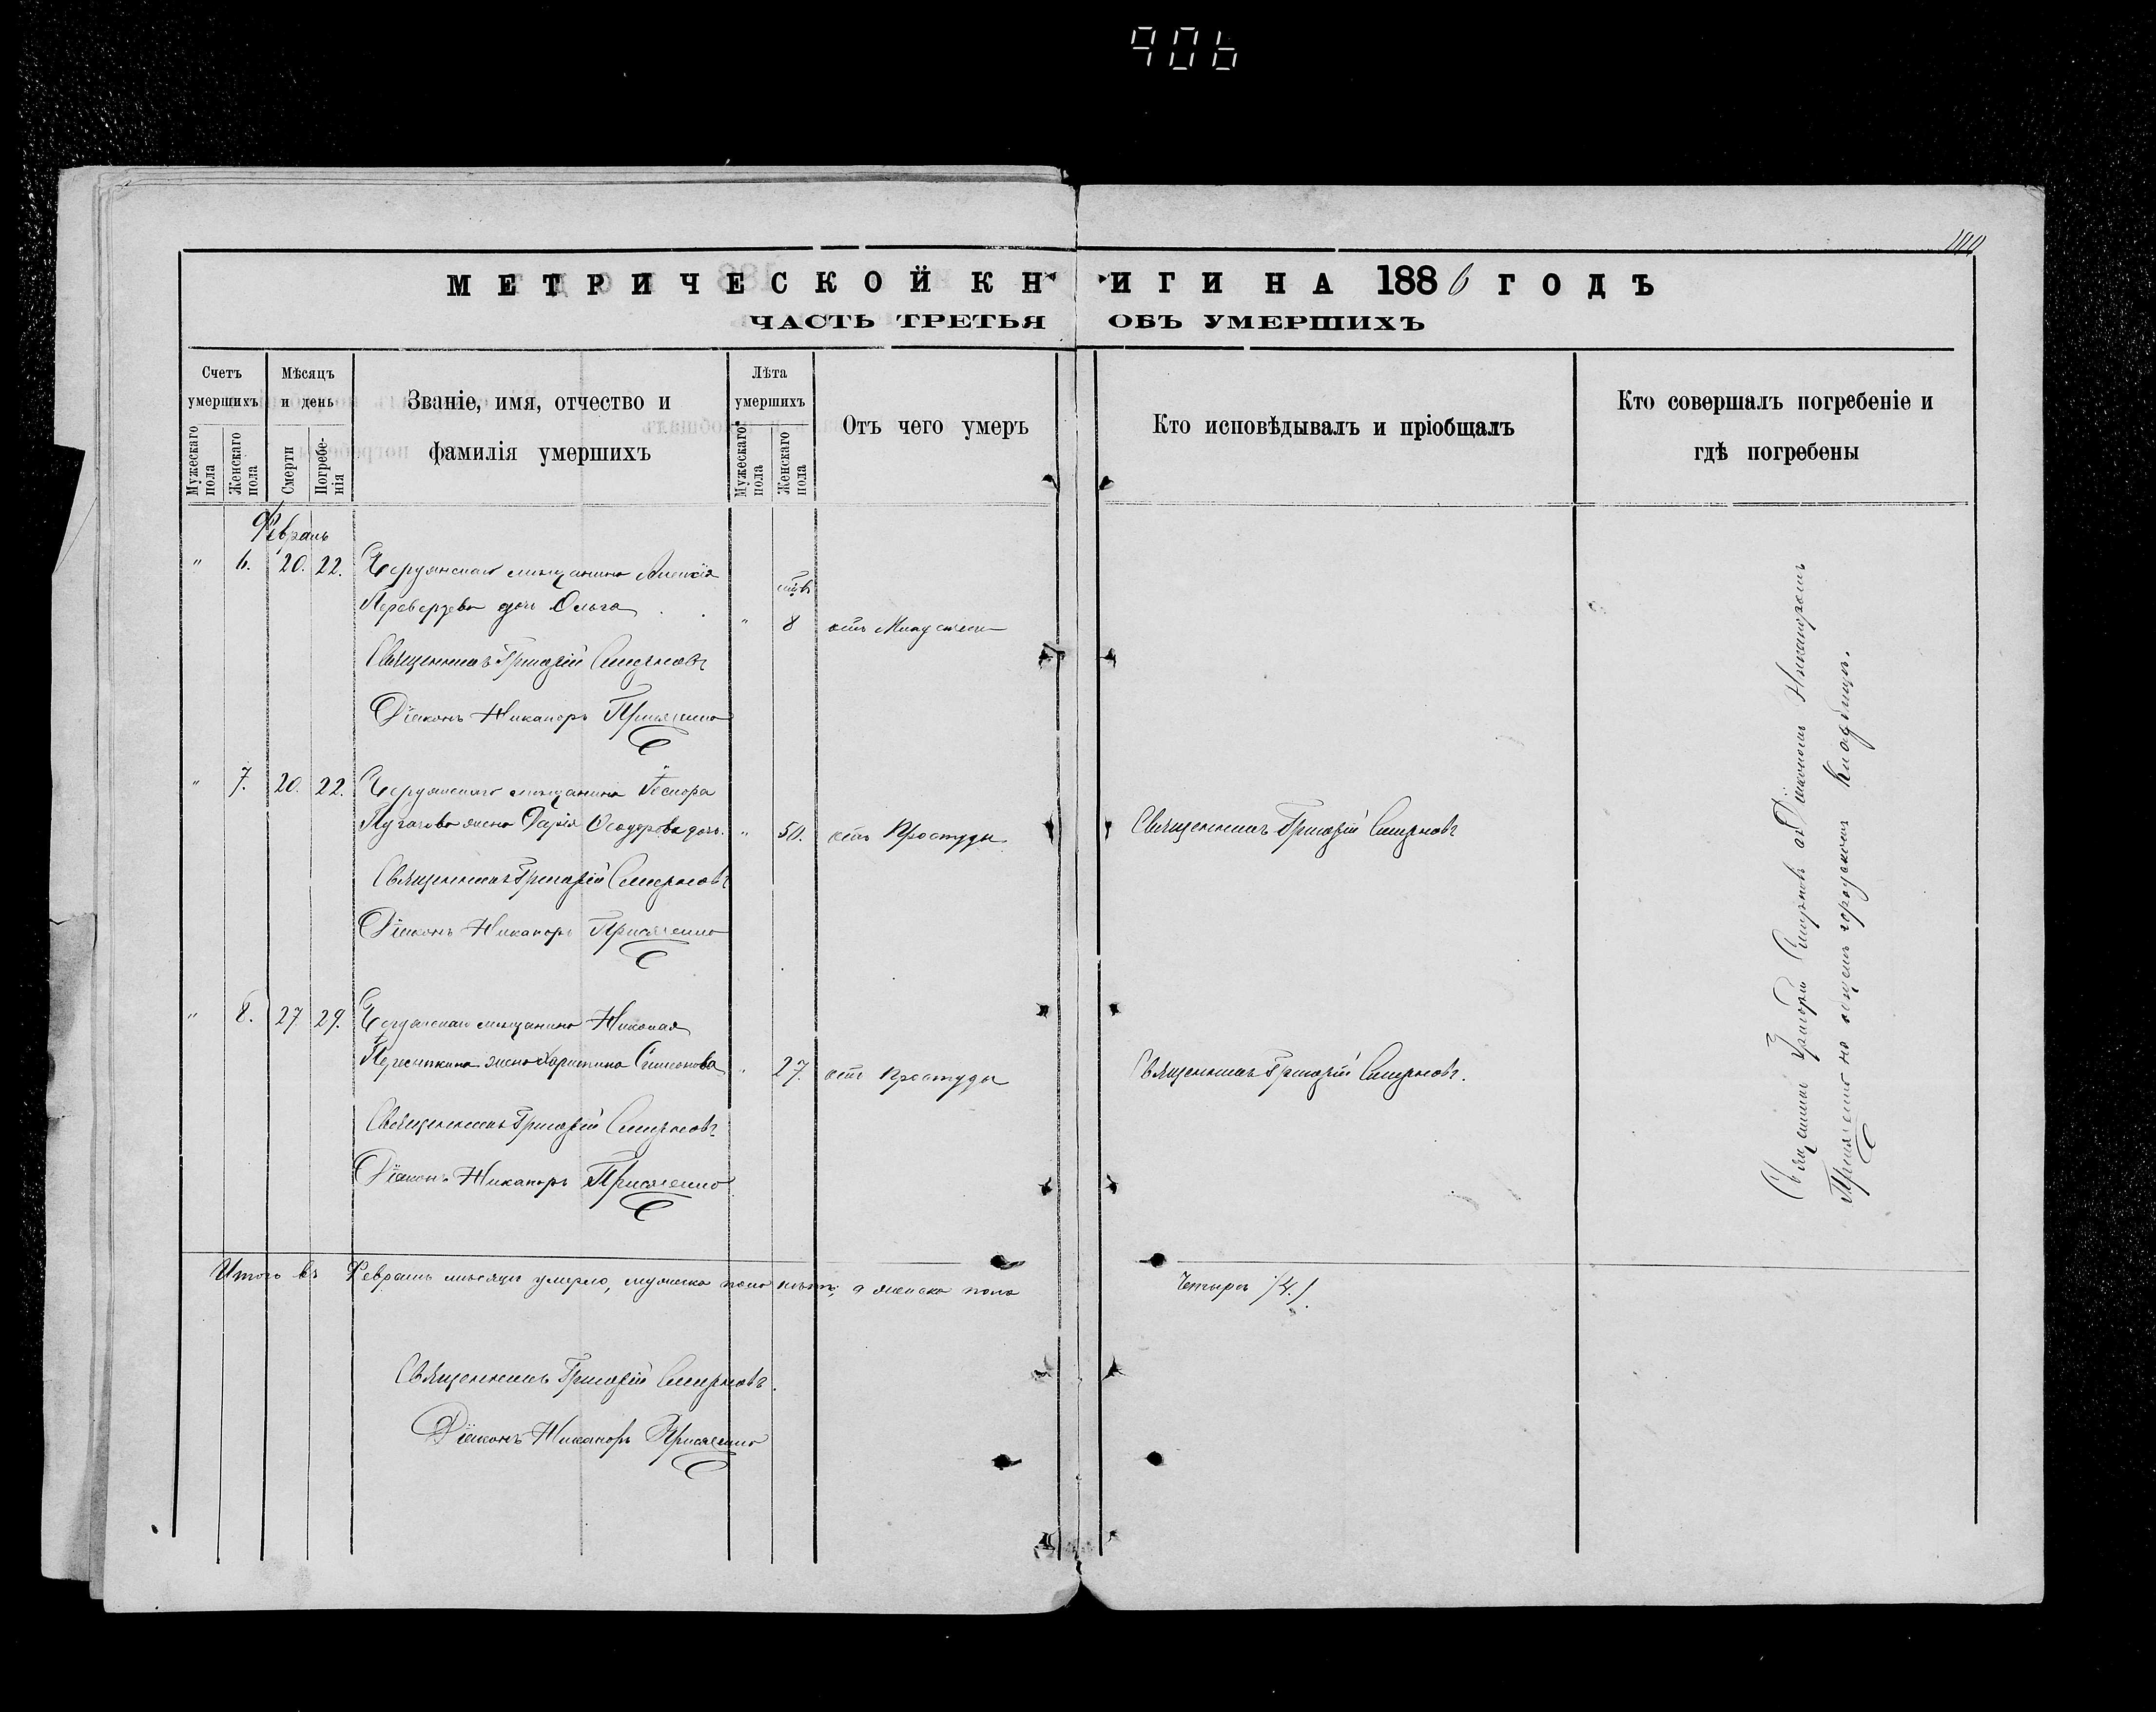 906
МЕТРИЧЕСКОЙ КНИГИ НА 1886 ГОДЪ
ЧАСТЬ ТРЕТЬЯ ОБЪ УМЕРШИХЪ
Счетъ умершихъ
Мужескаго пола
Женскаго пола
Мѣсяцъ и день
Смерти
Погребенія
Званіе, имя, отчество и фамилія умершихъ
Лѣта умершихъ
Мужескаго пола
Женскаго пола
Отъ чего умеръ
Кто исповѣдывалъ и пріобщалъ
Кто совершалъ погребеніе и гдѣ погребены
Февраль
" 6. 20. 22. мѣщанина Алексія
дочь Ольга
" 8 отъ
Священникъ Григорій Смирновъ
Діаконъ Никаноръ
" 7. 20. 22. мѣщанина
Пугачова жена Дарія Ѳеодорова дочь. " 50. отъ Простуды Священникъ Григорій Смирновъ
Священникъ Григорій Смирновъ
Діаконъ Никаноръ
" 8. 27 29. мѣщанина Николая
жена Харитина Симонова " 27. отъ Простуды Священникъ Григорій Смирновъ.
Священникъ Григорій Смирновъ
Діаконъ Никаноръ
Священникъ Григорій Смирновъ съ Діакономъ Никаноромъ
на общемъ городскомъ Кладбищѣ.
Итого въ Февралѣ мѣсяцѣ умерло, мужеска пола нѣтъ, а женска пола Четыре /4./
Священникъ Григорій Смирновъ.
Діаконъ Никаноръ